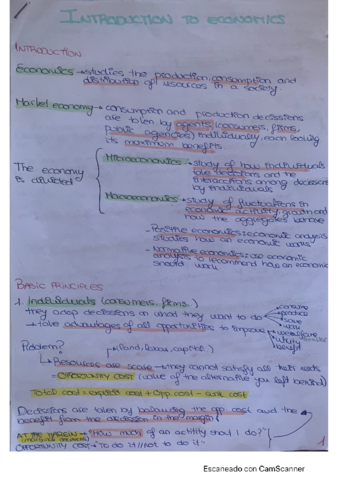 INTRODUCTION TO ECONOMICS
INTRODUCTION
Economics → studies the production, consumption and
distribution of resources in a society.
Market economy → consumption and production decissions
are taken by agents (consumers, firms,
public agencies) individually, each looking
its maximum benefits
The economy
is divided
Microeconomics → study of how individuals
take decissions and the
interactions among decissions
by individuals
Macroeconomics → study of fluctuations in
economic activity, growth and
how the aggregates behave
- Positive economics: economic analysis
studies how an economic works
- Normative economics: use economic
analysis to recommend how an economic
should work
BASIC PRINCIPLES
1. Individuals (consumers, firms..)
they adop decissions on what they want to do
→ consume
→ produce
→ save
→ work
→ take advantages of all opportunities to improve
→ welfare
→ utility
→ benefit
Problem?
(land, labour, capital)
→ Resources are scarce → they cannot satisfy all their wants
= OPORTUNITY COST (value of the alternative you left behind)
Total cost = explicit cost + opp. cost - sunk cost
Decissions are taken by balancing the opp cost and the
benefit from the decission in the margin
AT THE MARGIN → "How much of an activity should I do?"
(marginal decisions)
OPORTUNITY COST → To do it / not to do it
1
Escaneado con CamScanner